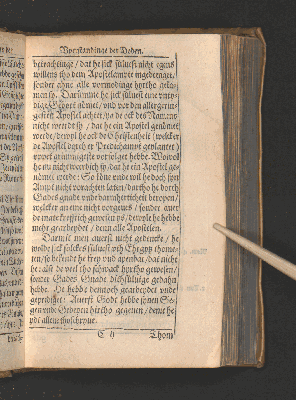 Vorstandinge der Deden.
betrachtinge / dat he sick sülvest nicht egens
willens tho dem Apostelampte ingedrenget /
sonder ahne alle vormodinge dartho geka-
men sy. Darümme he sick sülvest eine untydi-
ge Gebort nömet / und vor den allergerin-
gesten Apostel achtet / ja de ock des Namens
nicht werdt sy / dat he ein Apostel genömet
werde / dewyl he ock de Christenheit (welcker
de Apostel dorch er Predickampt geplantet)
upt grimmigeste vorfolget hebbe. Wowol
he nu nicht werdich sy / dat he ein Apostel ge-
nömet werde: So
Ampt nicht vorachten laten / dartho he dorch
Gades gnade und barmherticheit beropen /
welcker an eme nicht vorgeves / sonder aver
de mate krefftich gewesen ys / dewyle he hebbe
mehr gearbeydet / denn alle Apostelen.
Darmit men averst nicht gedencke / he
wolde sick solckes sülvest tho Ehren thome-
ten / so bekennt he fry und apenbar / dat nicht
he: alse de veel tho schwack hyrtho gewesen /
sonder Gades Gnade dith sülvige gedahn
hebbe. He hebbe dennoch gearbeydet unde
geprediget: Averst Godt hebbe synen Se-
gen unde Gedyen hirtho gegeven / deme he
ydt allene thoschryve.
C ij Thom